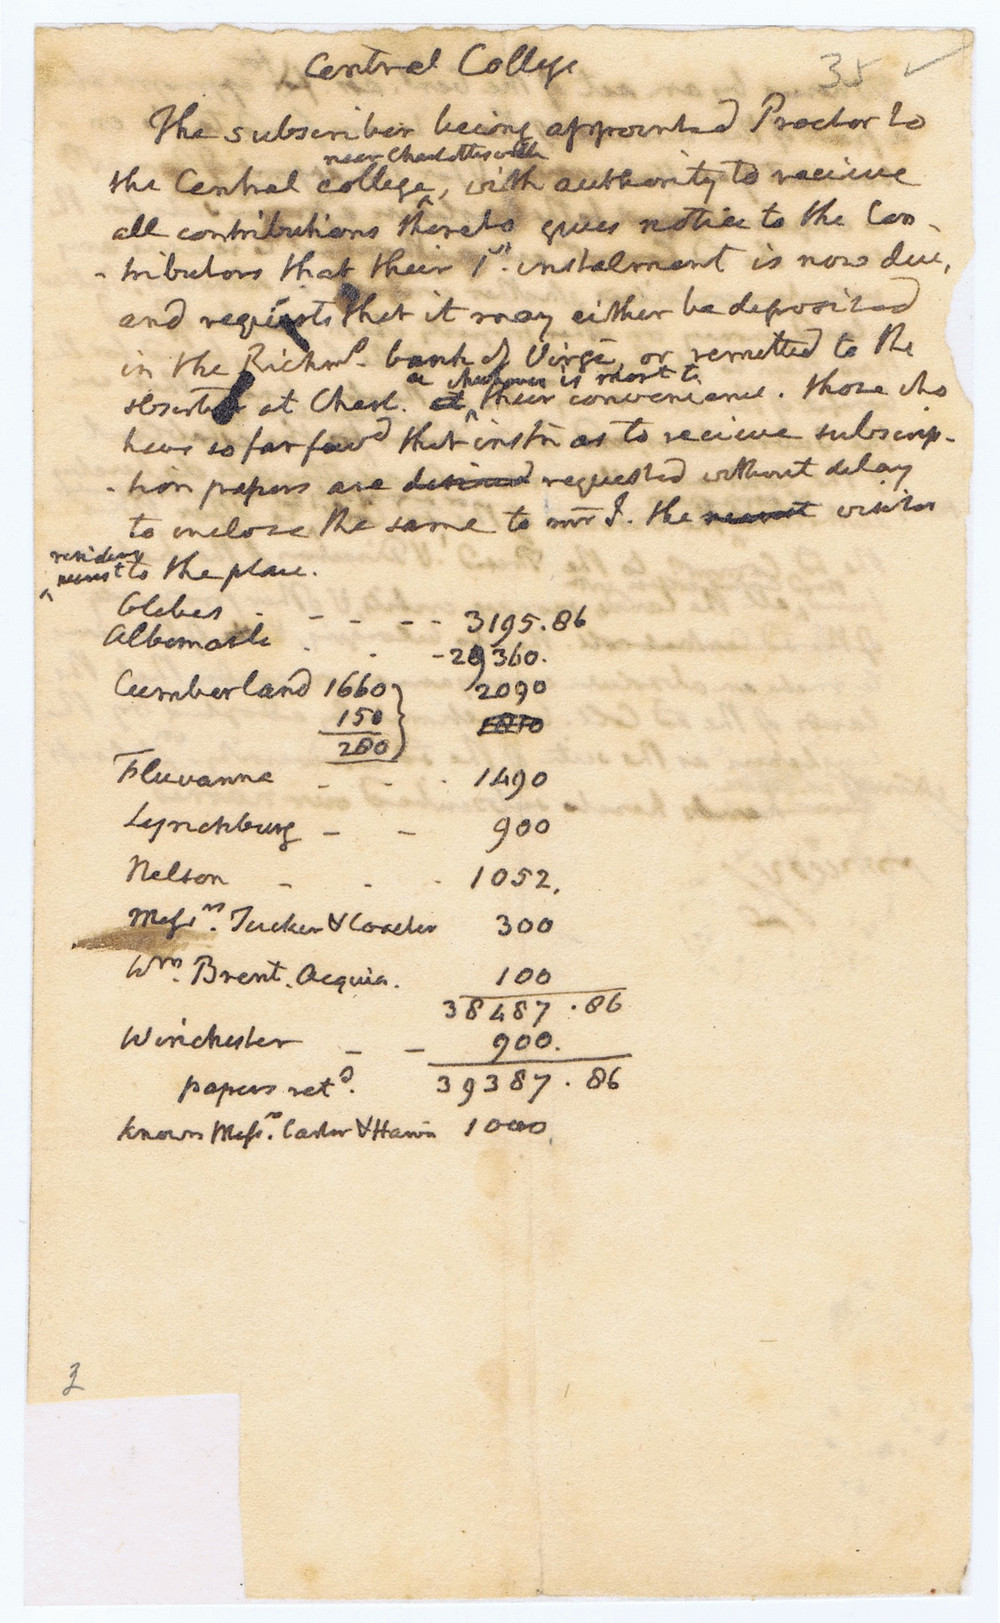 Central College
35
The subscriber being appointed Proctor to
near Charlottesville
the Central college, with authority to recieve
all contributions thereto gives notice to the Con-
-tributors that their 1st. instalment is now due,
and requests that it may either be deposited
in the Richmd. bank of Virga, or remitted to the
as is most to
at Charl. at their convenience. those who
have so far favd that instn as to recieve subscrip-
-tion papers are desired requested without delay
to inclose the same to mr J. the nearest visitor
residing
nearest to the place.
Glebes - - - - - 3195.86
Albemarle . . - 29360.
Cumberland 1660 2090
150 1810
280
Fluvanna - - . 1490
Lynchburg - - 900
Nelson - . . 1052.
Messrs. Tucker & Coalter 300
Wm. Brent. Acquia. 100
38487.86
Winchester - - 900.
papers retd. 39387.86
known Messrs. Carter & Harris 1000
3